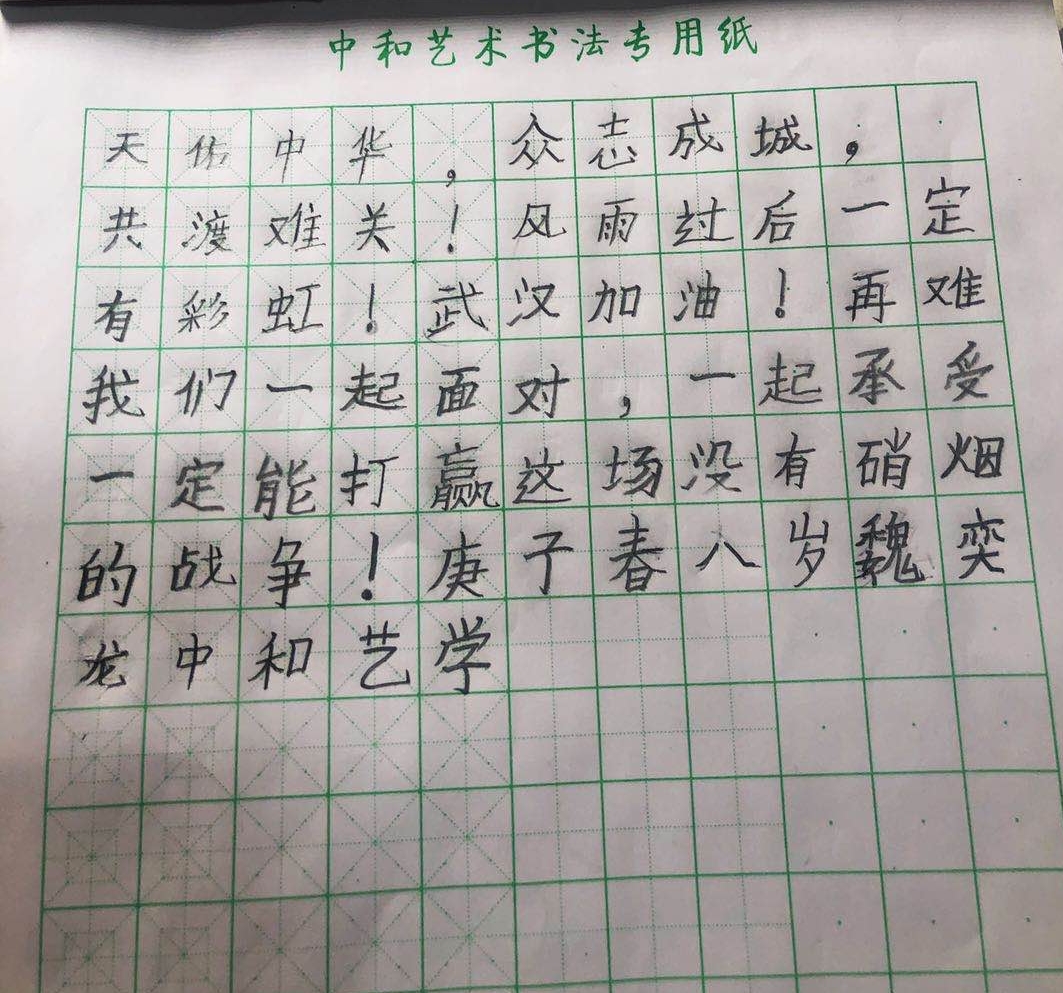 中和艺术书法专用纸
天佑中华，众志成城，
共渡难关！风雨过后一定
有彩虹！武汉加油！再难
我们一起面对，一起承受
一定能打赢这场没有硝烟
的战争！庚子春八岁魏奕
龙中和艺学